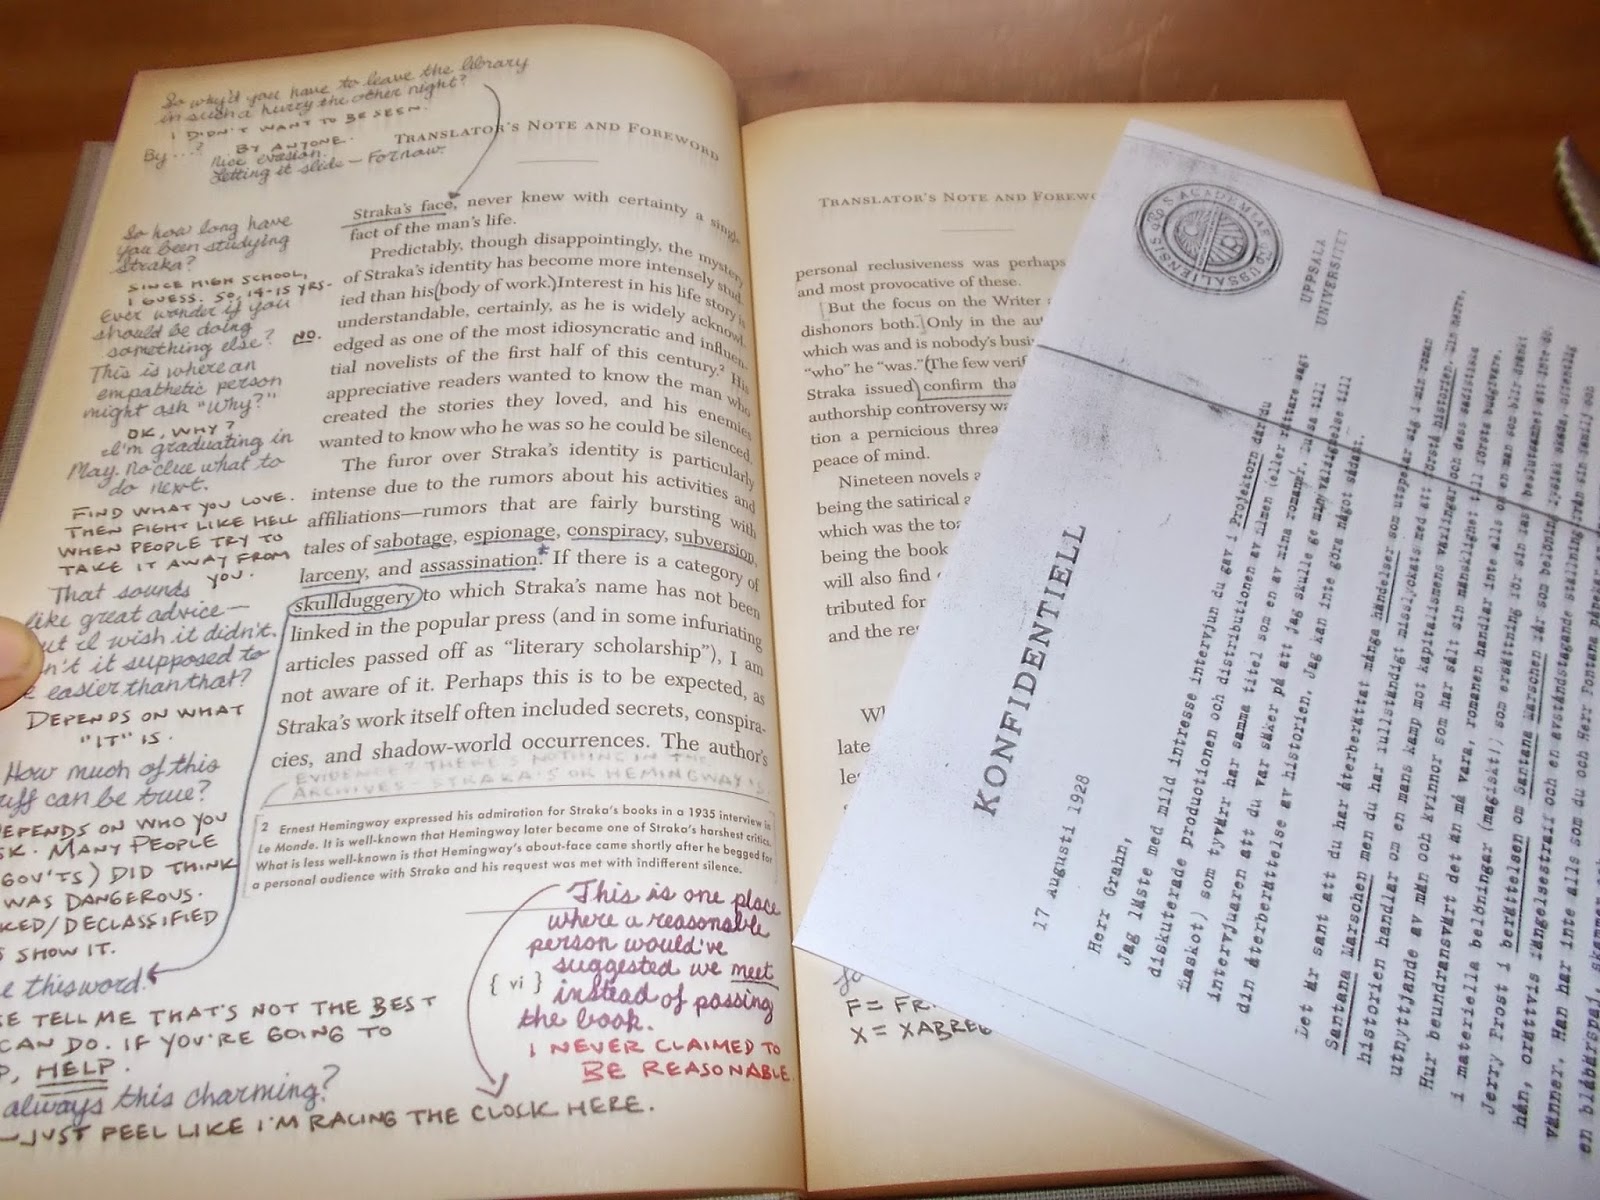 So why'd you have to leave the library
in such a hurry the other night?
I DIDN'T WANT TO BE SEEN.
By...? BY ANYONE.
Nice evasion.
Letting it slide — For now.
TRANSLATOR'S NOTE AND FOREWORD
So how long have
you been studying
Straka?
SINCE HIGH SCHOOL,
I GUESS. SO, 14-15 YRS.
Ever wonder if you
should be doing
something else?
NO.
This is where an
empathetic person
might ask "Why?"
OK, WHY?
I'm graduating in
May. No clue what to
do next.
FIND WHAT YOU LOVE.
THEN FIGHT LIKE HELL
WHEN PEOPLE TRY TO
TAKE IT AWAY FROM
YOU.
That sounds
like great advice—
but I wish it didn't.
it supposed to
easier than that?
DEPENDS ON WHAT
"IT" IS.
How much of this
can be true?
DEPENDS ON WHO YOU
MANY PEOPLE
GOV'TS) DID THINK
WAS DANGEROUS.
/DECLASSIFIED
SHOW IT.
this word.
TELL ME THAT'S NOT THE BEST
CAN DO. IF YOU'RE GOING TO
HELP.
always this charming?
—JUST FEEL LIKE I'M RACING THE CLOCK HERE.
Straka's face, never knew with certainty a single
fact of the man's life.
Predictably, though disappointingly, the mystery
of Straka's identity has become more intensely stud-
ied than his (body of work.) Interest in his life story is
understandable, certainly, as he is widely acknowl-
edged as one of the most idiosyncratic and influen-
tial novelists of the first half of this century.² His
appreciative readers wanted to know the man who
created the stories they loved, and his enemies
wanted to know who he was so he could be silenced.
The furor over Straka's identity is particularly
intense due to the rumors about his activities and
affiliations—rumors that are fairly bursting with
tales of sabotage, espionage, conspiracy, subversion,
larceny, and assassination.* If there is a category of
skullduggery to which Straka's name has not been
linked in the popular press (and in some infuriating
articles passed off as "literary scholarship"), I am
not aware of it. Perhaps this is to be expected, as
Straka's work itself often included secrets, conspira-
cies, and shadow-world occurrences. The author's
EVIDENCE? THERE'S NOTHING IN THE
ARCHIVES – STRAKA'S OR HEMINGWAY'S.
2 Ernest Hemingway expressed his admiration for Straka's books in a 1935 interview in
Le Monde. It is well-known that Hemingway later became one of Straka's harshest critics.
What is less well-known is that Hemingway's about-face came shortly after he begged for
a personal audience with Straka and his request was met with indifferent silence.
This is one place
where a reasonable
person would've
suggested we meet
instead of passing
the book.
{ vi }
I NEVER CLAIMED TO
BE REASONABLE.
TRANSLATOR'S NOTE AND
personal reclusiveness was perhaps
and most provocative of these.
[But the focus on the Writer
dishonors both.] Only in the
which was and is nobody's
"who" he "was." (The few
Straka issued) confirm
authorship controversy
tion a pernicious
peace of mind.
Nineteen novels
being the satirical
which was the
being the book
will also find
tributed for
and the
late
F =
X =
UPPSALA
UNIVERSITET
KONFIDENTIELL
17 augusti 1928
Herr Grahn,
Jag läste med mild intresse intervjun du gav i Projektorn därdu
diskuterade produktionen och distributionen av filmen (eller rättare sagt
) som tyvärr har samma titel som en av mina romaner.
intervjuaren att du var säker på att jag skulle ge min välsignelse till
din återberättelse av historien. Jag kan inte göra något sådant.
Det är sant att du har återberättat många händelser som utspelar sig i min roman
Santana Marschen men du har fullständigt misslyckats med att förstå historien.
historien handlar om en mans kamp mot kapitalismens
utnyttjande av män och kvinnor som har sålt sin mänsklighet till första budgivare.
Hur beundransvärt det än må vara, romanen handlar inte alls om en man som blir
i materiella belöningar (magisät!) som ersättning för sin
Jerry Frost i berättelsen om Santana Marschen får som belöning
hån, orättvis fängelsestraff och en avståndstagande ställning från sin familj och
vänner. Han har inte alls som du och Herr Fontana